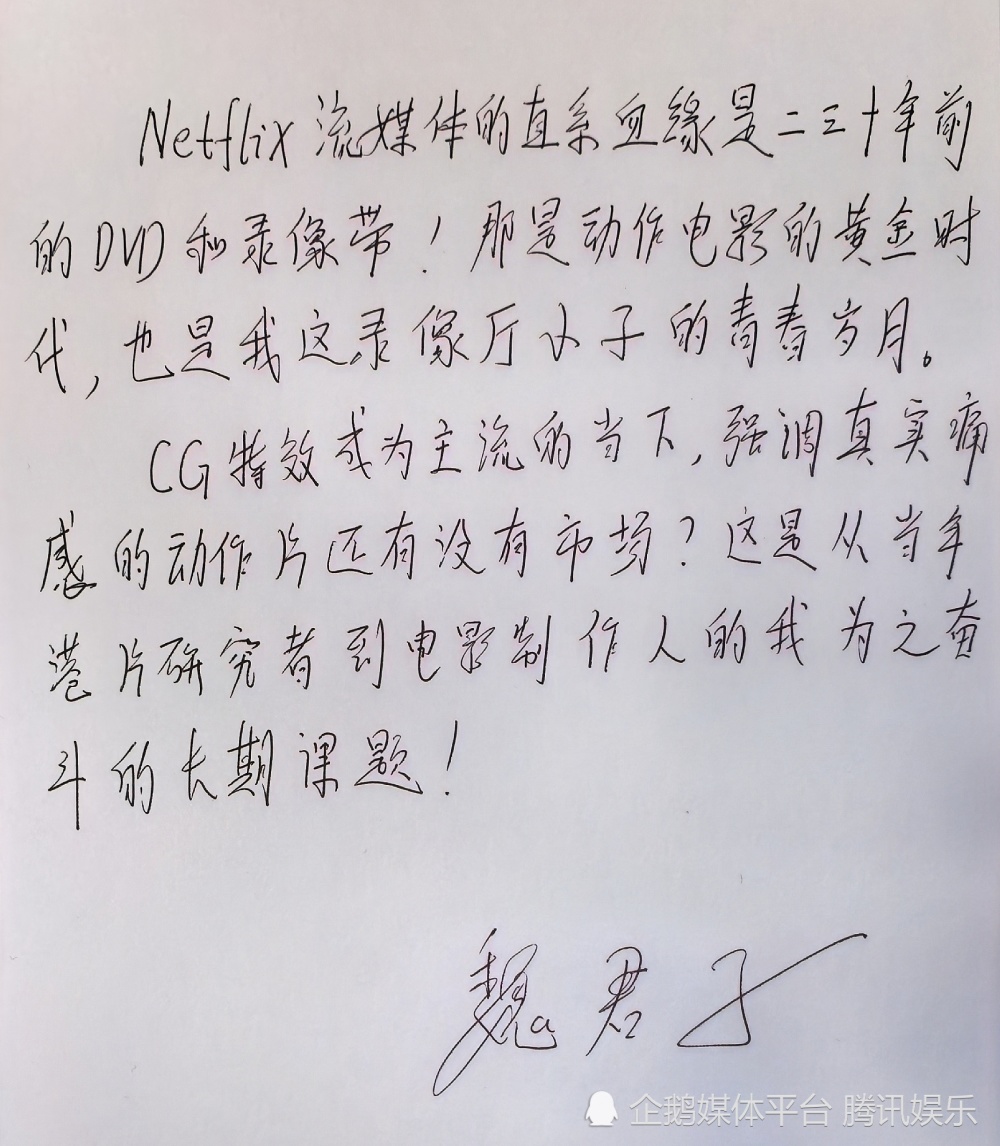 Netflix 流媒体的直系血缘是二三十年前
的DVD和录像带！那是动作电影的黄金时
代，也是我这录像厅小子的青春岁月。
CG特效成为主流的当下，强调真实痛
感的动作片还有没有市场？这是从当年
港片研究者到电影制作人的我为之奋
斗的长期课题！
魏君子
企鹅媒体平台 腾讯娱乐